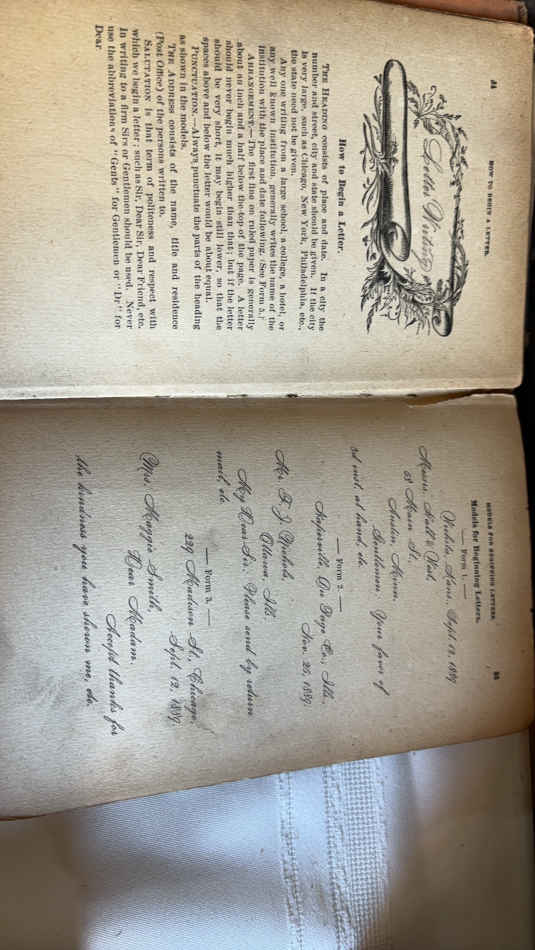 HOW TO BEGIN A LETTER.
Letter Writing
How to Begin a Letter.
THE HEADING consists of place and date. In a city the
number and street, city and state should be given. If the city
is very large, such as Chicago, New York, Philadelphia, etc.,
the state need not be given.
Any one writing from a large school, a college, a hotel, or
any well known institution, generally writes the name of the
institution with the place and date following. (See Form 5.)
ARRANGEMENT.—The first line on ruled paper is generally
about an inch and a half below the top of the page. A letter
should never begin much higher than that; but if the letter
should be very short, it may begin still lower, so that the
spaces above and below the letter would be about equal.
PUNCTUATION.—Always punctuate the parts of the heading
as shown in the models.
THE ADDRESS consists of the name, title and residence
(Post Office) of the persons written to.
SALUTATION is that term of politeness and respect with
which we begin a letter; such as Sir, Dear Sir, Dear Friend, etc.
In writing to a firm Sirs or Gentlemen should be used. Never
use the abbreviations of "Gents" for Gentlemen or "Dr" for
Dear
MODELS FOR BEGINNING LETTERS.
Models for Beginning Letters.
— Form 1. —
Wichita, Kans., Sept. 12, 1889.
Messrs. Hall & West,
58 Main St.,
Austin, Minn.
Gentlemen: Your favor of
3d inst. at hand, etc.
— Form 2. —
Naperville, Du Page Co., Ills.,
Nov. 25, 1889.
Mr. F. J. Nichols,
Ottawa, Ill.
My Dear Sir: Please send by return
mail, etc.
— Form 3. —
229 Madison St., Chicago,
Sept. 12, 1889.
Mrs. Maggie Smith,
Dear Madam:
Accept thanks for
the kindness you have shown me, etc.